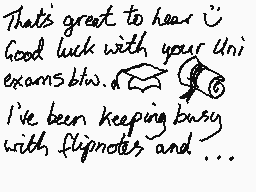 That's great to hear ü
Good luck with your Uni
exams btw.
I've been keeping busy
with flipnotes and ...